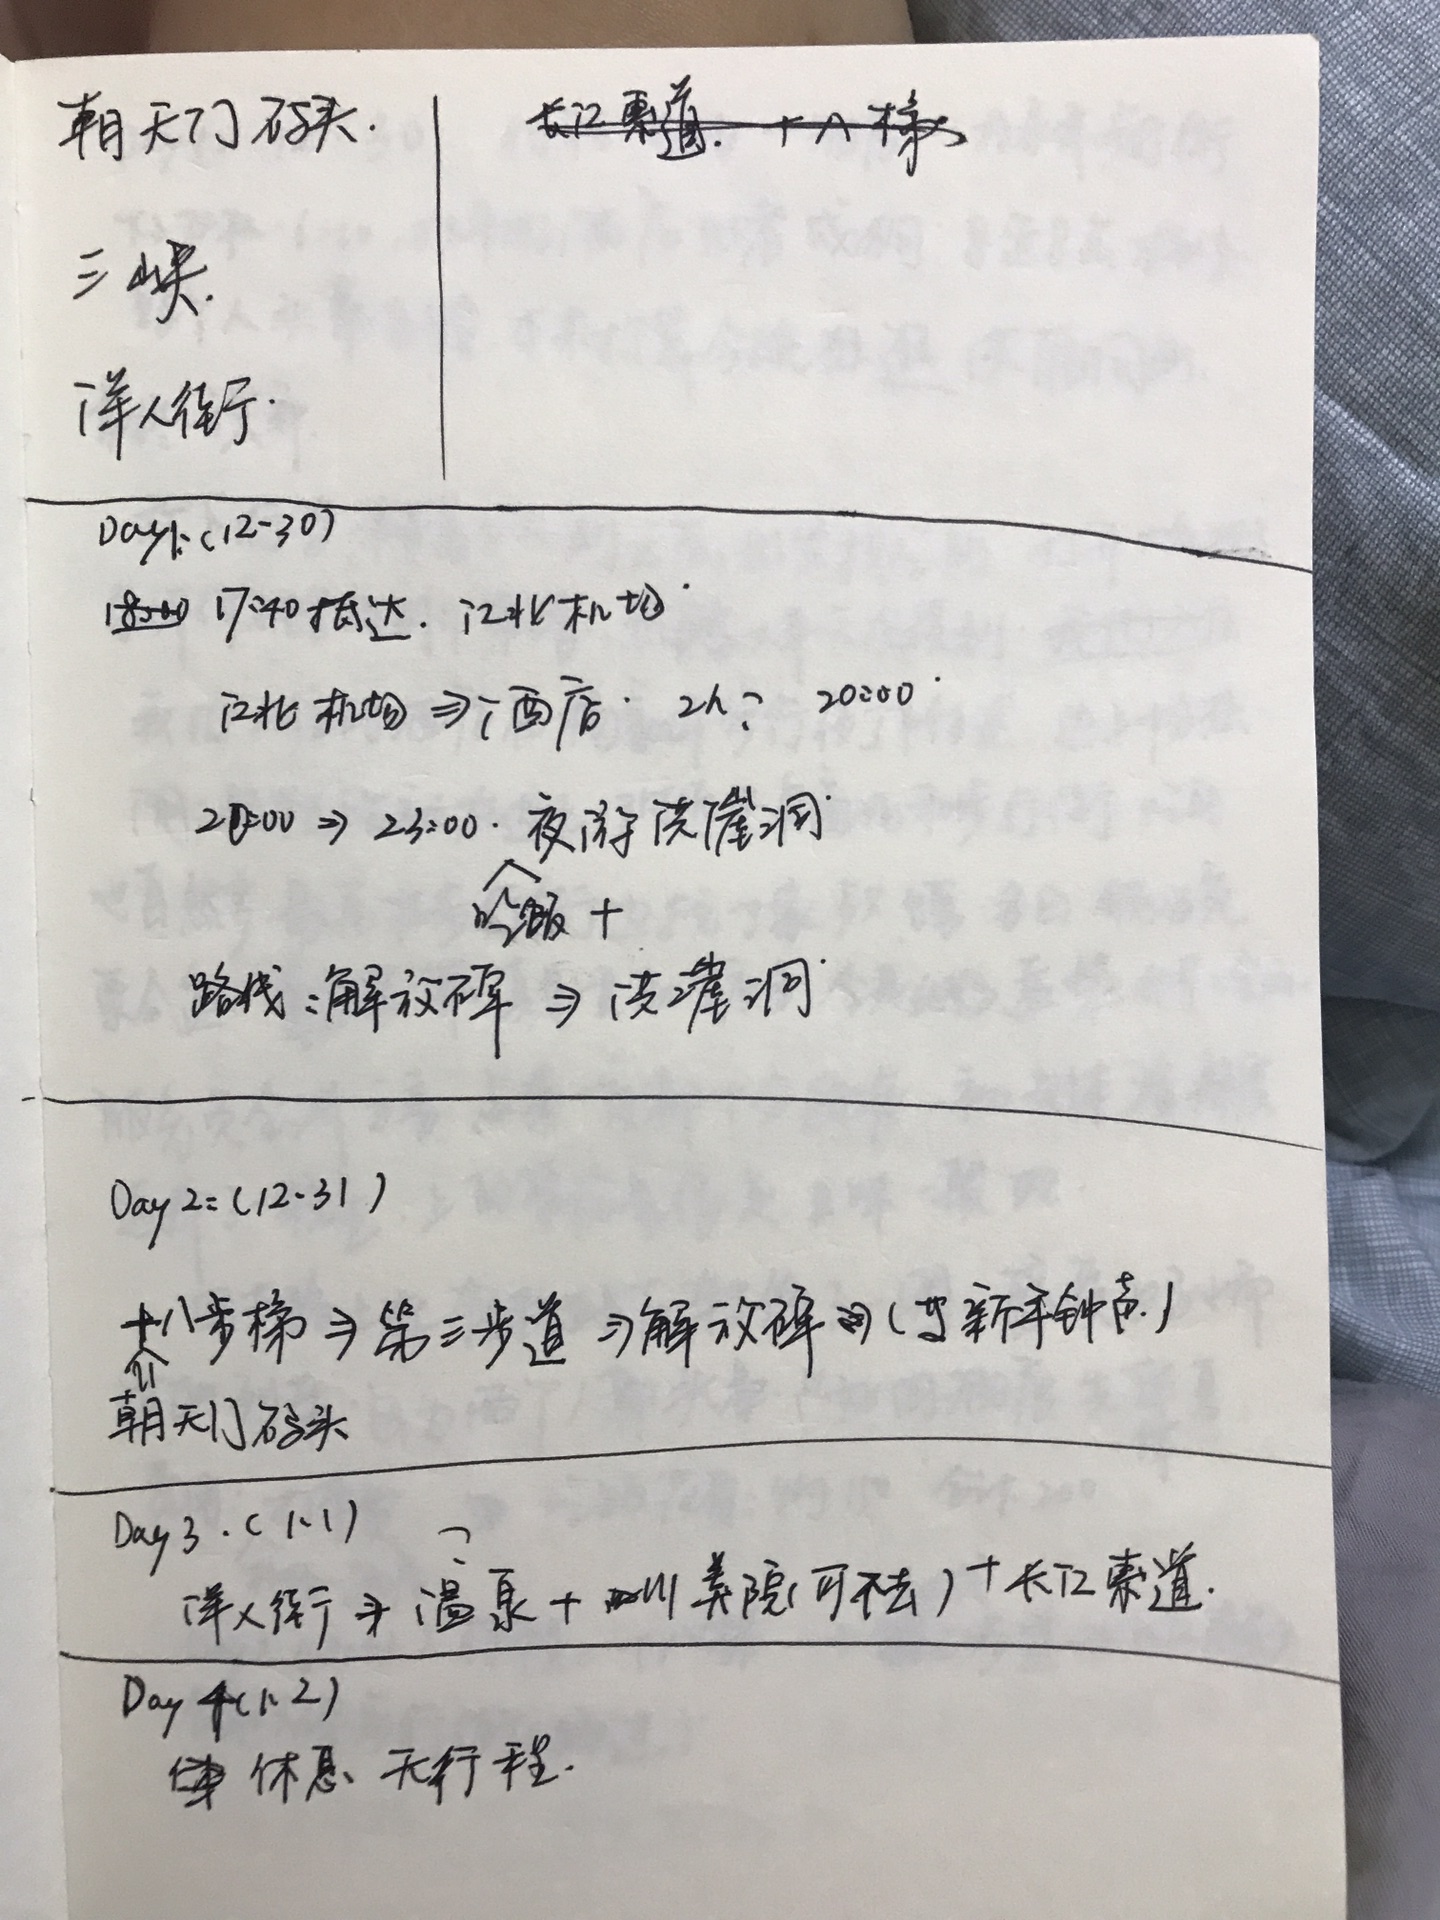 朝天门码头.
长江索道. 十八梯
三峡.
洋人街.
Day1:(12-30)
18:00 17:40抵达. 江北机场.
江北机场⇒酒店. 2h? 20:00.
20:00⇒23:00. 夜游洪崖洞.
吃饭+
路线:解放碑⇒洪崖洞.
Day2:(12-31)
十八步梯⇒第三步道⇒解放碑⇒(新年钟声.)
朝天门码头
Day3.(1.1)
洋人街⇒温泉+川美院(可不去)+长江索道.
Day4(1.2)
休息 无行程.